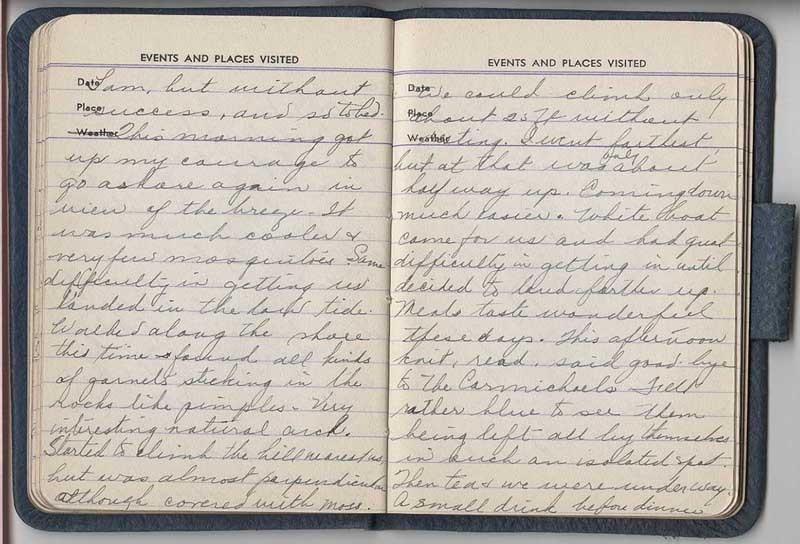 EVENTS AND PLACES VISITED
Date I am, but without
Place success, and so to bed.
Weather This morning got
up my courage to
go ashore again in
view of the breeze. It
was much cooler &
very few mosquitoes. Same
difficulty in getting us
landed in the low tide.
Walked along the shore
this time & found all kinds
of garnets sticking in the
rocks like pimples. Very
interesting natural arch.
Started to climb the hill nearest us,
but was almost perpendicular
although covered with moss.
EVENTS AND PLACES VISITED
Date We could climb only
Place about 20 ft without
Weather resting. I went farthest,
but at that was only about
half way up. Coming down
much easier. White boat
came for us and had great
difficulty in getting in until
decided to land farther up.
Meals taste wonderful
these days. This afternoon
knit, read, said good-bye
to The Carmichaels. Felt
rather blue to see them
being left all by themselves
in such an isolated spot.
Then tea & we were under way.
A small drink before dinner